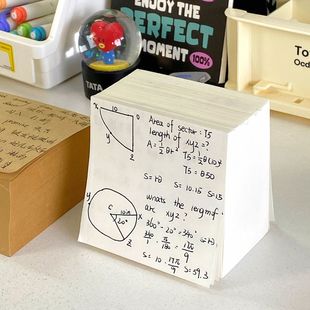 THE
PERFECT
MOMENT
100%
TATA
To
Ocd
x 10 o
y
z
Area of sector : 75
length of xyz = ?
A = 1/2 θr²
75 = 1/2 θ(10)²
75 = θ50
S = rθ
S = 10.15 S = 15
y
C 10 in x
20°
z
whats the length of
arc xyz ?
360° - 20° = 340°
340/1 · π/180 = 17π/9
S = 10 . 17π/9 S = 59.3